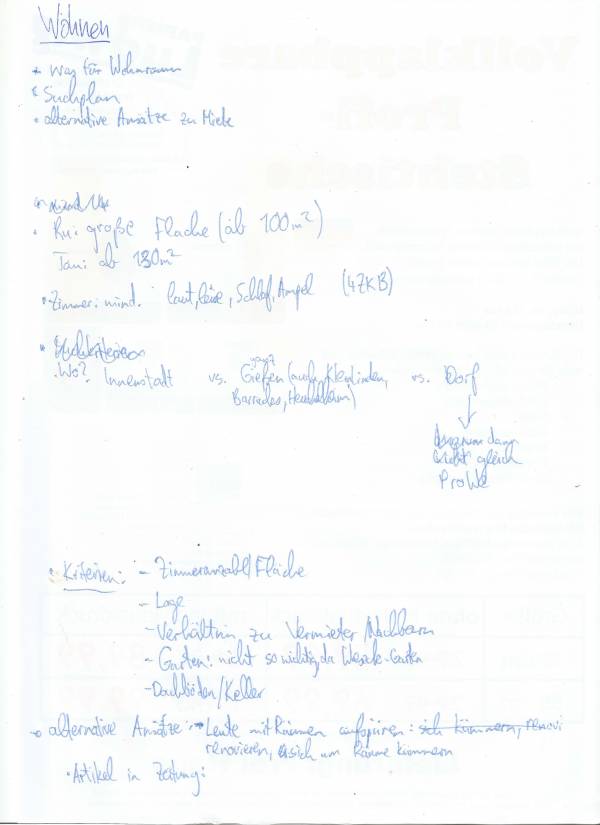 Wohnen
* Was für Wohnraum
* Suchplan
* alternative Ansätze zu Miete
• Ru: große Fläche (ab 100m²)
Tani: ab 130m²
• Zimmer: mind. laut, leise, Schlaf, Ampel (4ZKB)
Wo? Innenstadt vs. Gießen (auch Kleinlinden, vs. Dorf
ganz
dann
nicht gleich
ProWe
• Kriterien: - Zimmeranzahl/Fläche
- Lage
- Verhältnis zu Vermieter/Nachbarn
- Garten: nicht so wichtig, da Garten
- Dachböden/Keller
alternative Ansätze: Leute mit Räumen aufspüren: sich kümmern, renovi
renovieren, sich um Räume kümmern
• Artikel in Zeitung: